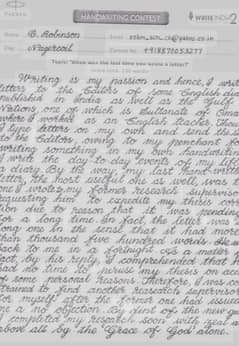 HANDWRITING CONTEST
WRITE NOW 2
Name R. Robinson
City Nagercoil
Topic: "When was the last time you wrote a letter?"
Writing is my passion and hence, I write
letters to the Editors of some English dailies
published in India as well as the Gulf
Nations, one of which is Sultanate of Oman
where I worked as an English teacher. Though
I type letters on my own and send them
to the Editors, owing to my penchant for
writing something in my own handwriting
I write the day-to-day events of my life in
a diary. By the way, my last hand-written
letter, the most useful one as well, was the
one I wrote to my former research supervisor
requesting him to expedite my thesis correc
tion due to reason that it was pending
for a long time. In fact, the letter was a
long one in the sense that it had more
than thousand five hundred words. He wrote
back to me in a fortnight as a matter of
fact, by his reply I comprehended that he
had no time to peruse my thesis on account
of some personal reasons. Therefore, I was con
strained to find another research supervisor
for myself after the former one had issued
me a no objection. By dint of the new one
I completed my research soon with zeal and
above all by the Grace of God alone.